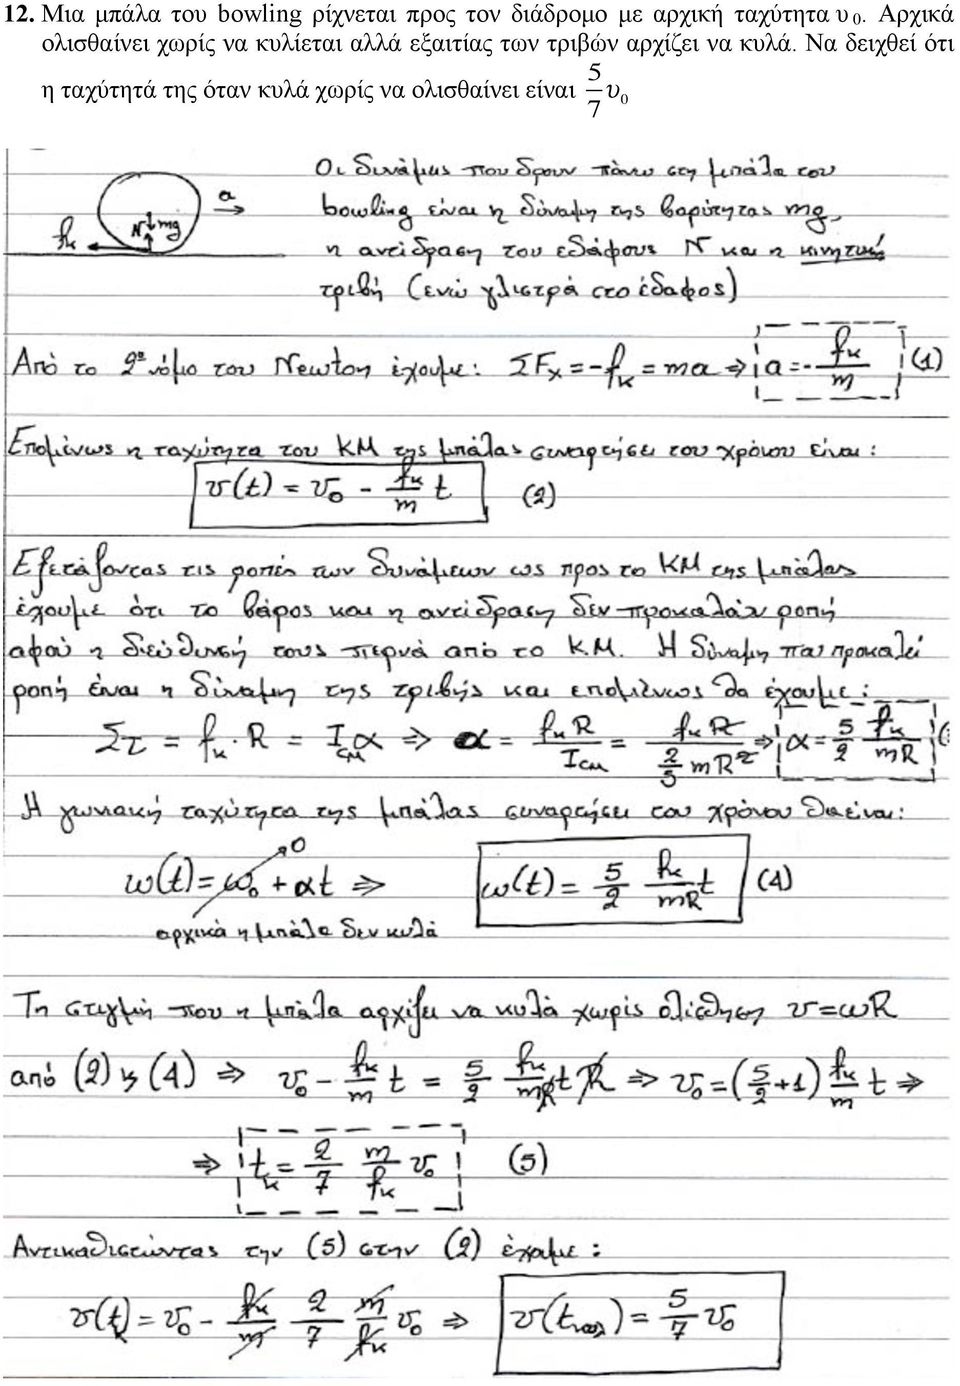 12. Μια μπάλα του bowling ρίχνεται προς τον διάδρομο με αρχική ταχύτητα υ₀. Αρχικά
ολισθαίνει χωρίς να κυλίεται αλλά εξαιτίας των τριβών αρχίζει να κυλά. Να δειχθεί ότι
η ταχύτητά της όταν κυλά χωρίς να ολισθαίνει είναι 5/7 υ₀
Οι δυνάμεις που δρουν πάνω στη μπάλα του
a
bowling είναι η δύναμη της βαρύτητας mg,
fκ N mg
η αντίδραση του εδάφους N και η κινητική
τριβή (ενώ γλιστρά στο έδαφος)
Από το 2º νόμο του Newton έχουμε: ΣFx = -fκ = ma ⇒ a = -fκ/m (1)
Επομένως η ταχύτητα του ΚΜ της μπάλας συναρτήσει του χρόνου είναι:
υ(t) = υ₀ - fκ/m t (2)
Εξετάζοντας τις ροπές των δυνάμεων ως προς το ΚΜ της μπάλας
έχουμε ότι το βάρος και η αντίδραση δεν προκαλούν ροπή
αφού η διεύθυνσή τους περνά από το Κ.Μ. Η δύναμη που προκαλεί
ροπή είναι η δύναμη της τριβής και επομένως θα έχουμε:
Στ = fκ·R = I_CM α ⇒ α = fκR/I_CM = fκR/(2/5 mR²) ⇒ α = 5/2 fκ/mR
Η γωνιακή ταχύτητα της μπάλας συναρτήσει του χρόνου θα είναι:
ω(t) = ω₀ + αt ⇒ ω(t) = 5/2 fκ/mR t (4)
0
αρχικά η μπάλα δεν κυλά
Τη στιγμή που η μπάλα αρχίζει να κυλά χωρίς ολίσθηση υ=ωR
από (2) & (4) ⇒ υ₀ - fκ/m t = 5/2 fκ/mR t R ⇒ υ₀ = (5/2 + 1) fκ/m t ⇒
⇒ tκ = 2/7 m/fκ υ₀ (5)
Αντικαθιστώντας την (5) στην (2) έχουμε:
υ(tκ) = υ₀ - fκ/m 2/7 m/fκ υ₀ ⇒ υ(tκυλ) = 5/7 υ₀